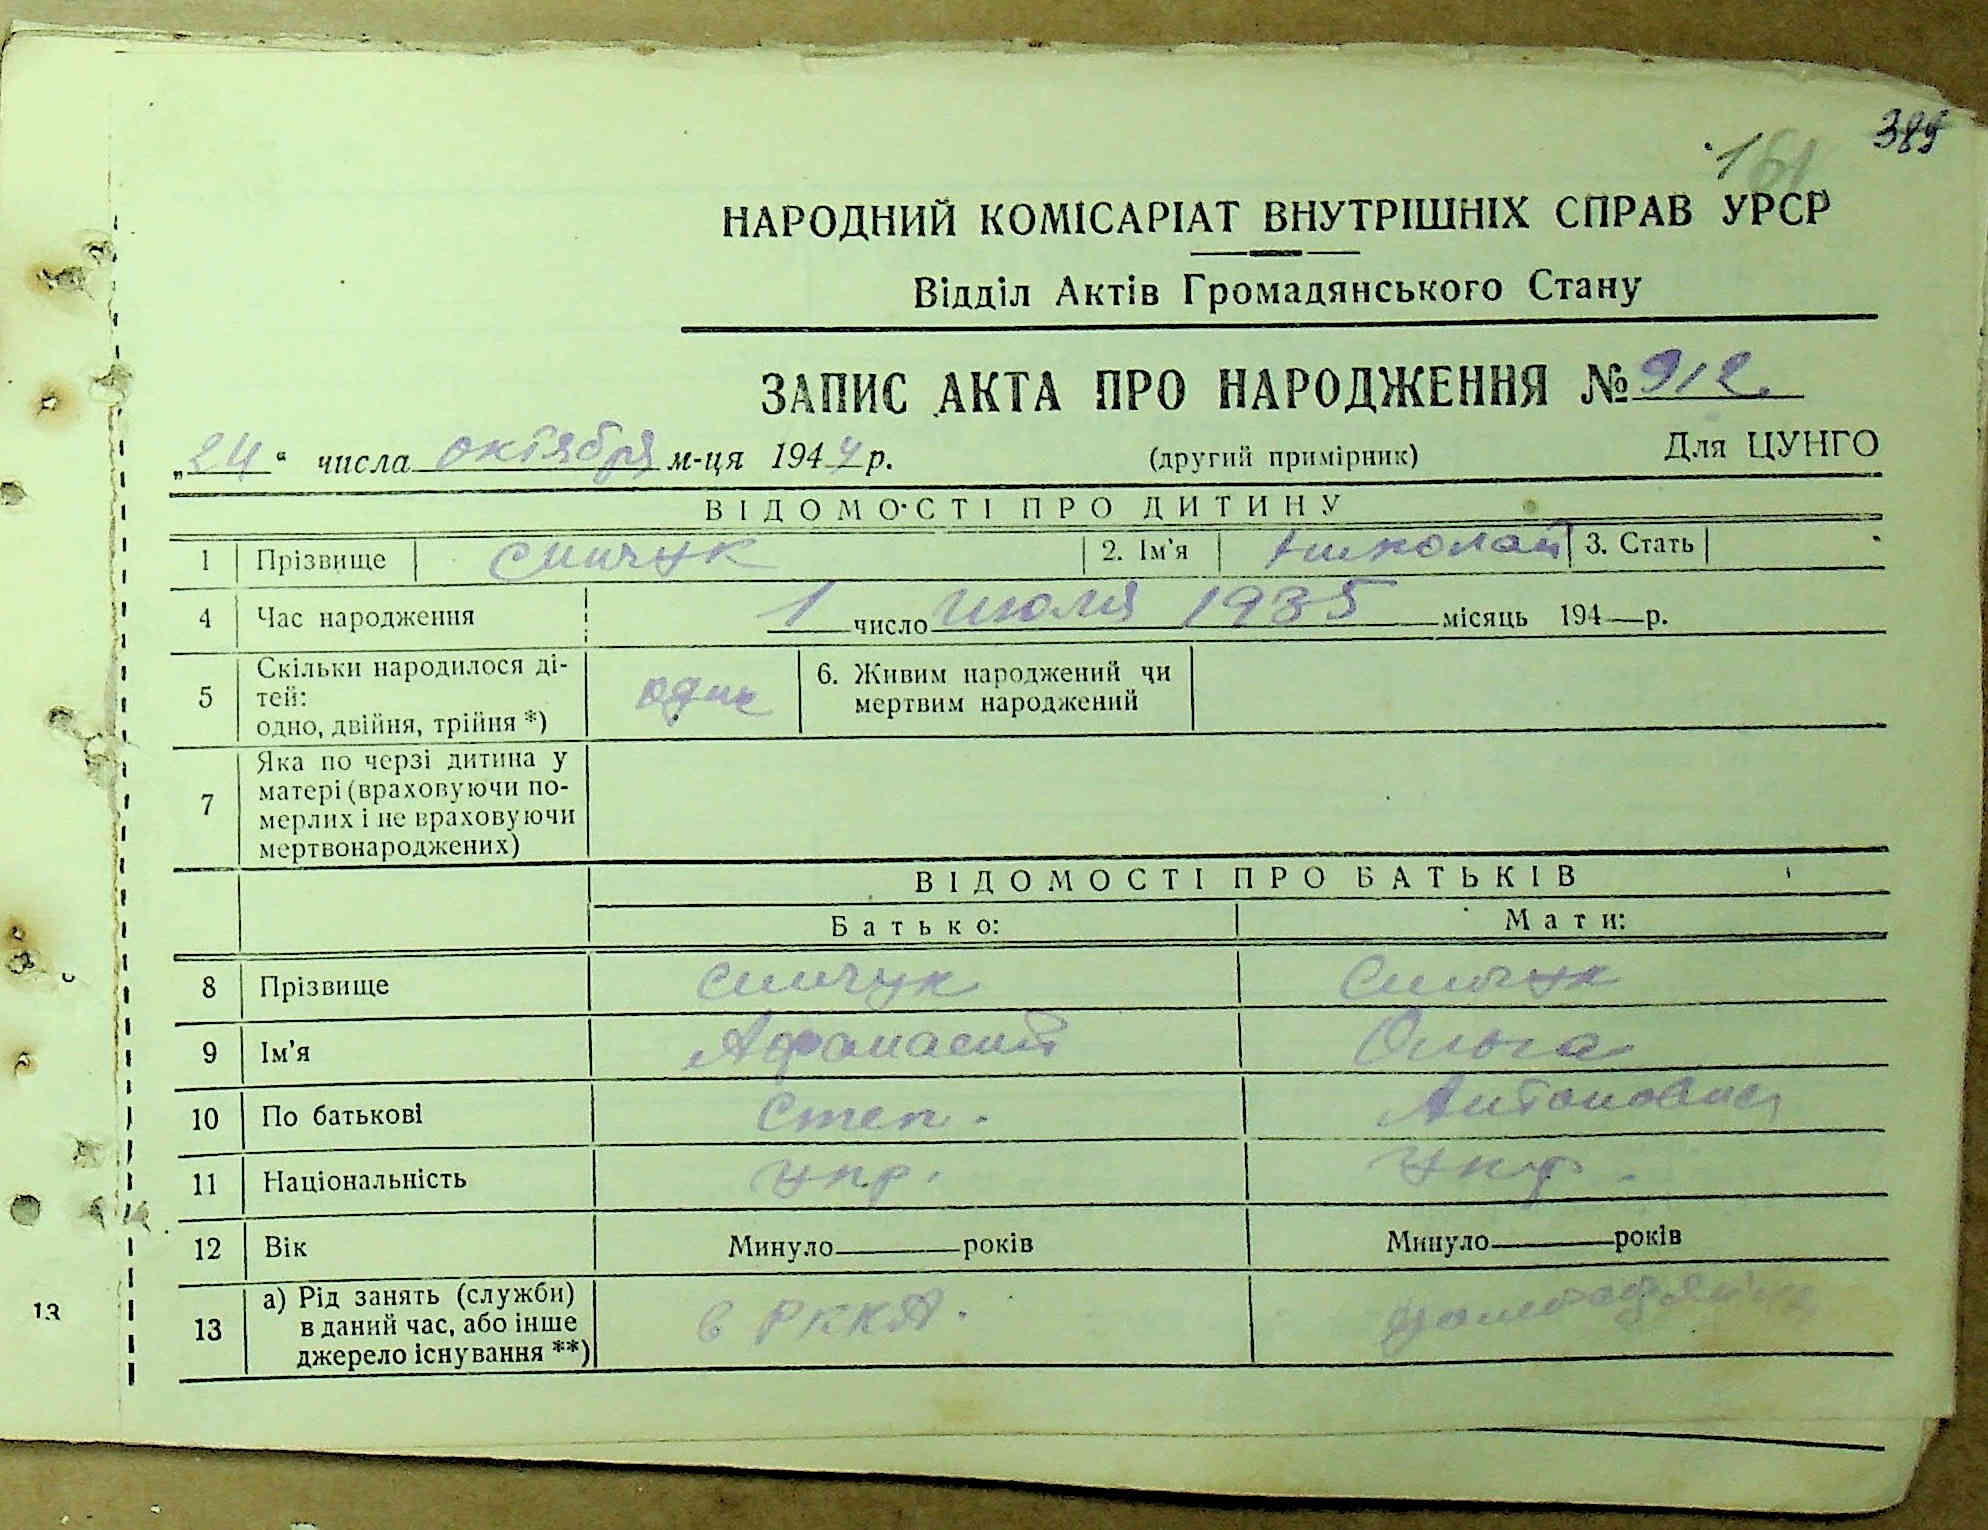 389
161
НАРОДНИЙ КОМІСАРІАТ ВНУТРІШНІХ СПРАВ УРСР
Відділ Актів Громадянського Стану
ЗАПИС АКТА ПРО НАРОДЖЕННЯ № 912.
„24“ числа октября м-ця 1944 р. (другий примірник) Для ЦУНГО
ВІДОМОСТІ ПРО ДИТИНУ
1 Прізвище 2. Ім'я Николай 3. Стать
4 Час народження 1 число июля 1935 місяць 194 р.
5 Скільки народилося ді-
тей:
одно, двійня, трійня *) один 6. Живим народжений чи
мертвим народжений
7 Яка по черзі дитина у
матері (враховуючи по-
мерлих і не враховуючи
мертвонароджених)
ВІДОМОСТІ ПРО БАТЬКІВ
Батько: Мати:
8 Прізвище
9 Ім'я Афанасий Ольга
10 По батькові Степ. Антоновна
11 Національність укр. укр.
12 Вік Минуло років Минуло років
13 а) Рід занять (служби)
в даний час, або інше
джерело існування **) в РККА.
13